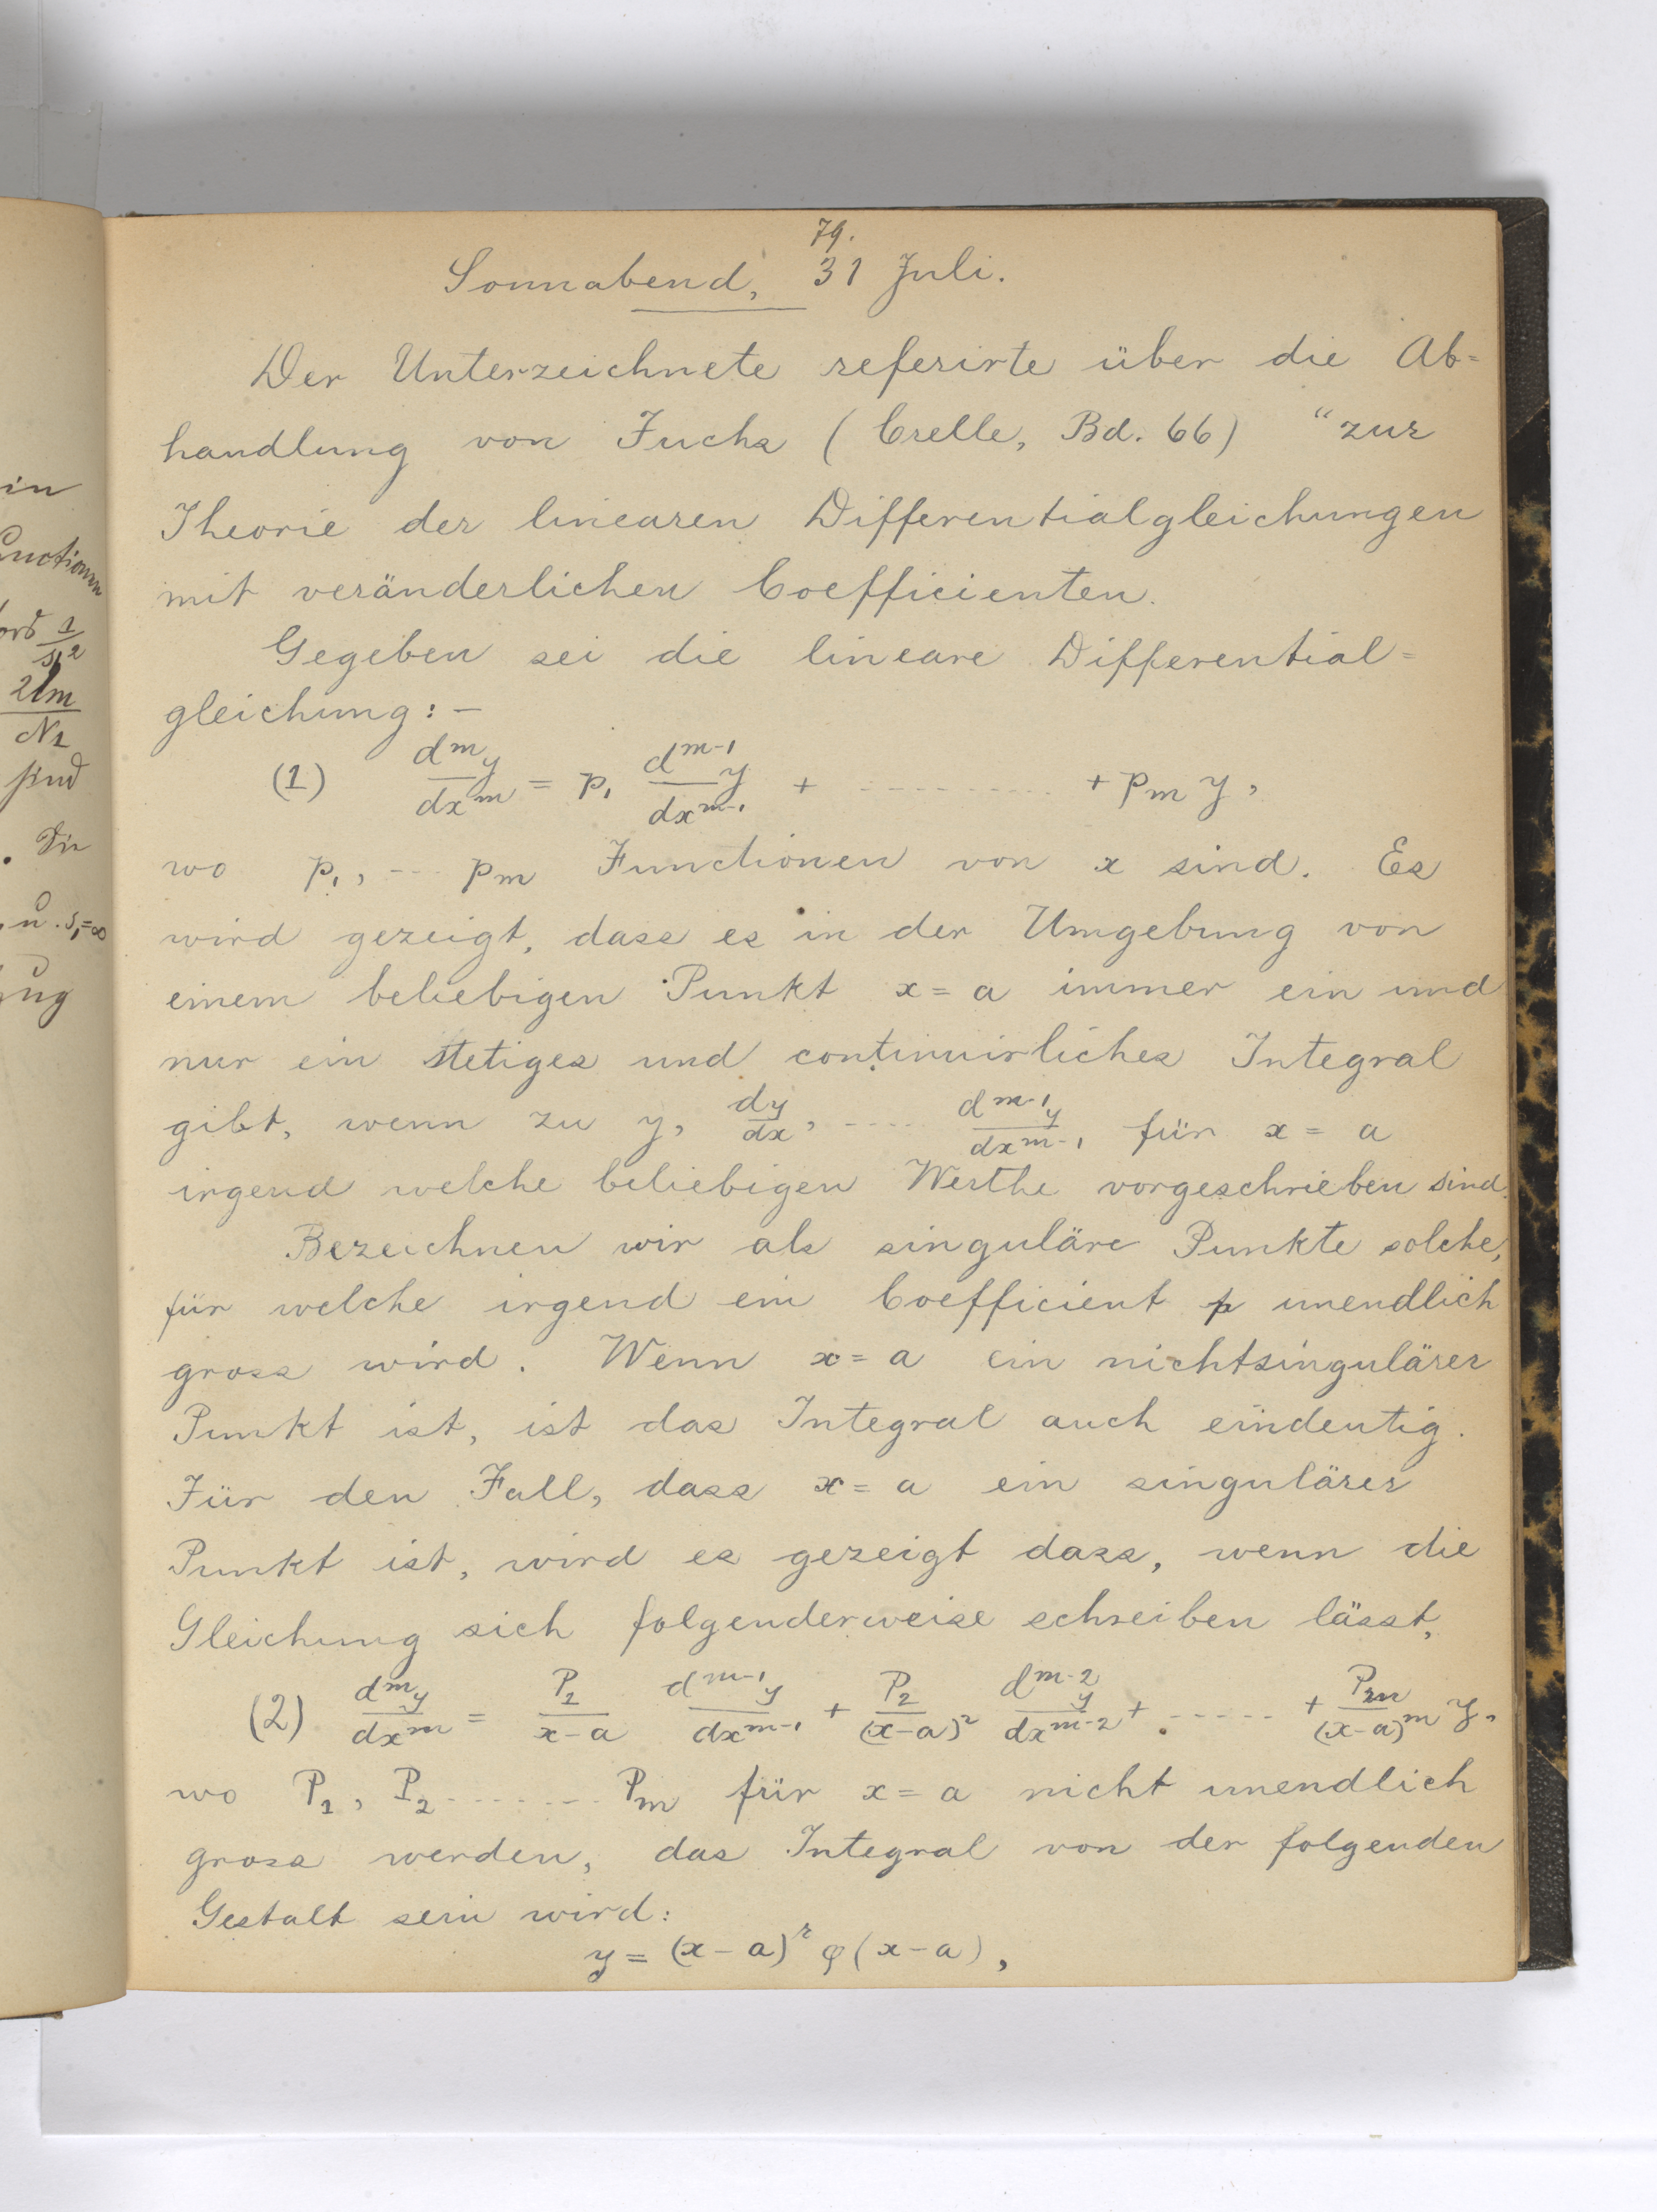 in
unctionen
1
2
2lm
N1
sind
. Die
u. s1=∞
ug
79.
Sonnabend, 31 Juli.
Der Unterzeichnete referirte über die Ab=
handlung von Fuchs (Crelle, Bd. 66) “zur
Theorie der linearen Differentialgleichungen
mit veränderlichen Coefficienten.
Gegeben sei die lineare Differential=
gleichung:—
(1) d^m y/dx^m = p₁ d^{m-1}y/dx^{m-1} + ---------- + p_m y,
wo p₁, --- p_m Functionen von x sind. Es
wird gezeigt, dass es in der Umgebung von
einem beliebigen Punkt x = a immer ein und
nur ein stetiges und continuirliches Integral
gibt, wenn zu y, dy/dx, ---- d^{m-1}y/dx^{m-1} für x = a
irgend welche beliebigen Werthe vorgeschrieben sind.
Bezeichnen wir als singuläre Punkte solche,
für welche irgend ein Coefficient p unendlich
gross wird. Wenn x = a ein nichtsingulärer
Punkt ist, ist das Integral auch eindeutig.
Für den Fall, dass x = a ein singulärer
Punkt ist, wird es gezeigt dass, wenn die
Gleichung sich folgenderweise schreiben lässt,
(2) d^m y/dx^m = P₁/(x-a) d^{m-1}y/dx^{m-1} + P₂/(x-a)² d^{m-2}y/dx^{m-2} + ------ + P_m/(x-a)^m y,
wo P₁, P₂ ------- P_m für x = a nicht unendlich
gross werden, das Integral von der folgenden
Gestalt sein wird:
y = (x-a)^r φ(x-a),